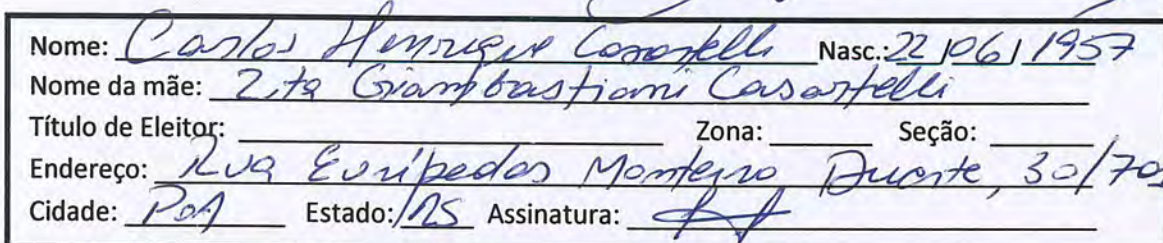 Nome: Carlos Henrique Casartelli Nasc.: 22/06/1957
Nome da mãe: Zita Giambastiani Casartelli
Título de Eleitor: Zona: Seção:
Endereço: Rua Eurípedes Monteiro Duarte, 30/70
Cidade: PoA Estado: RS Assinatura: